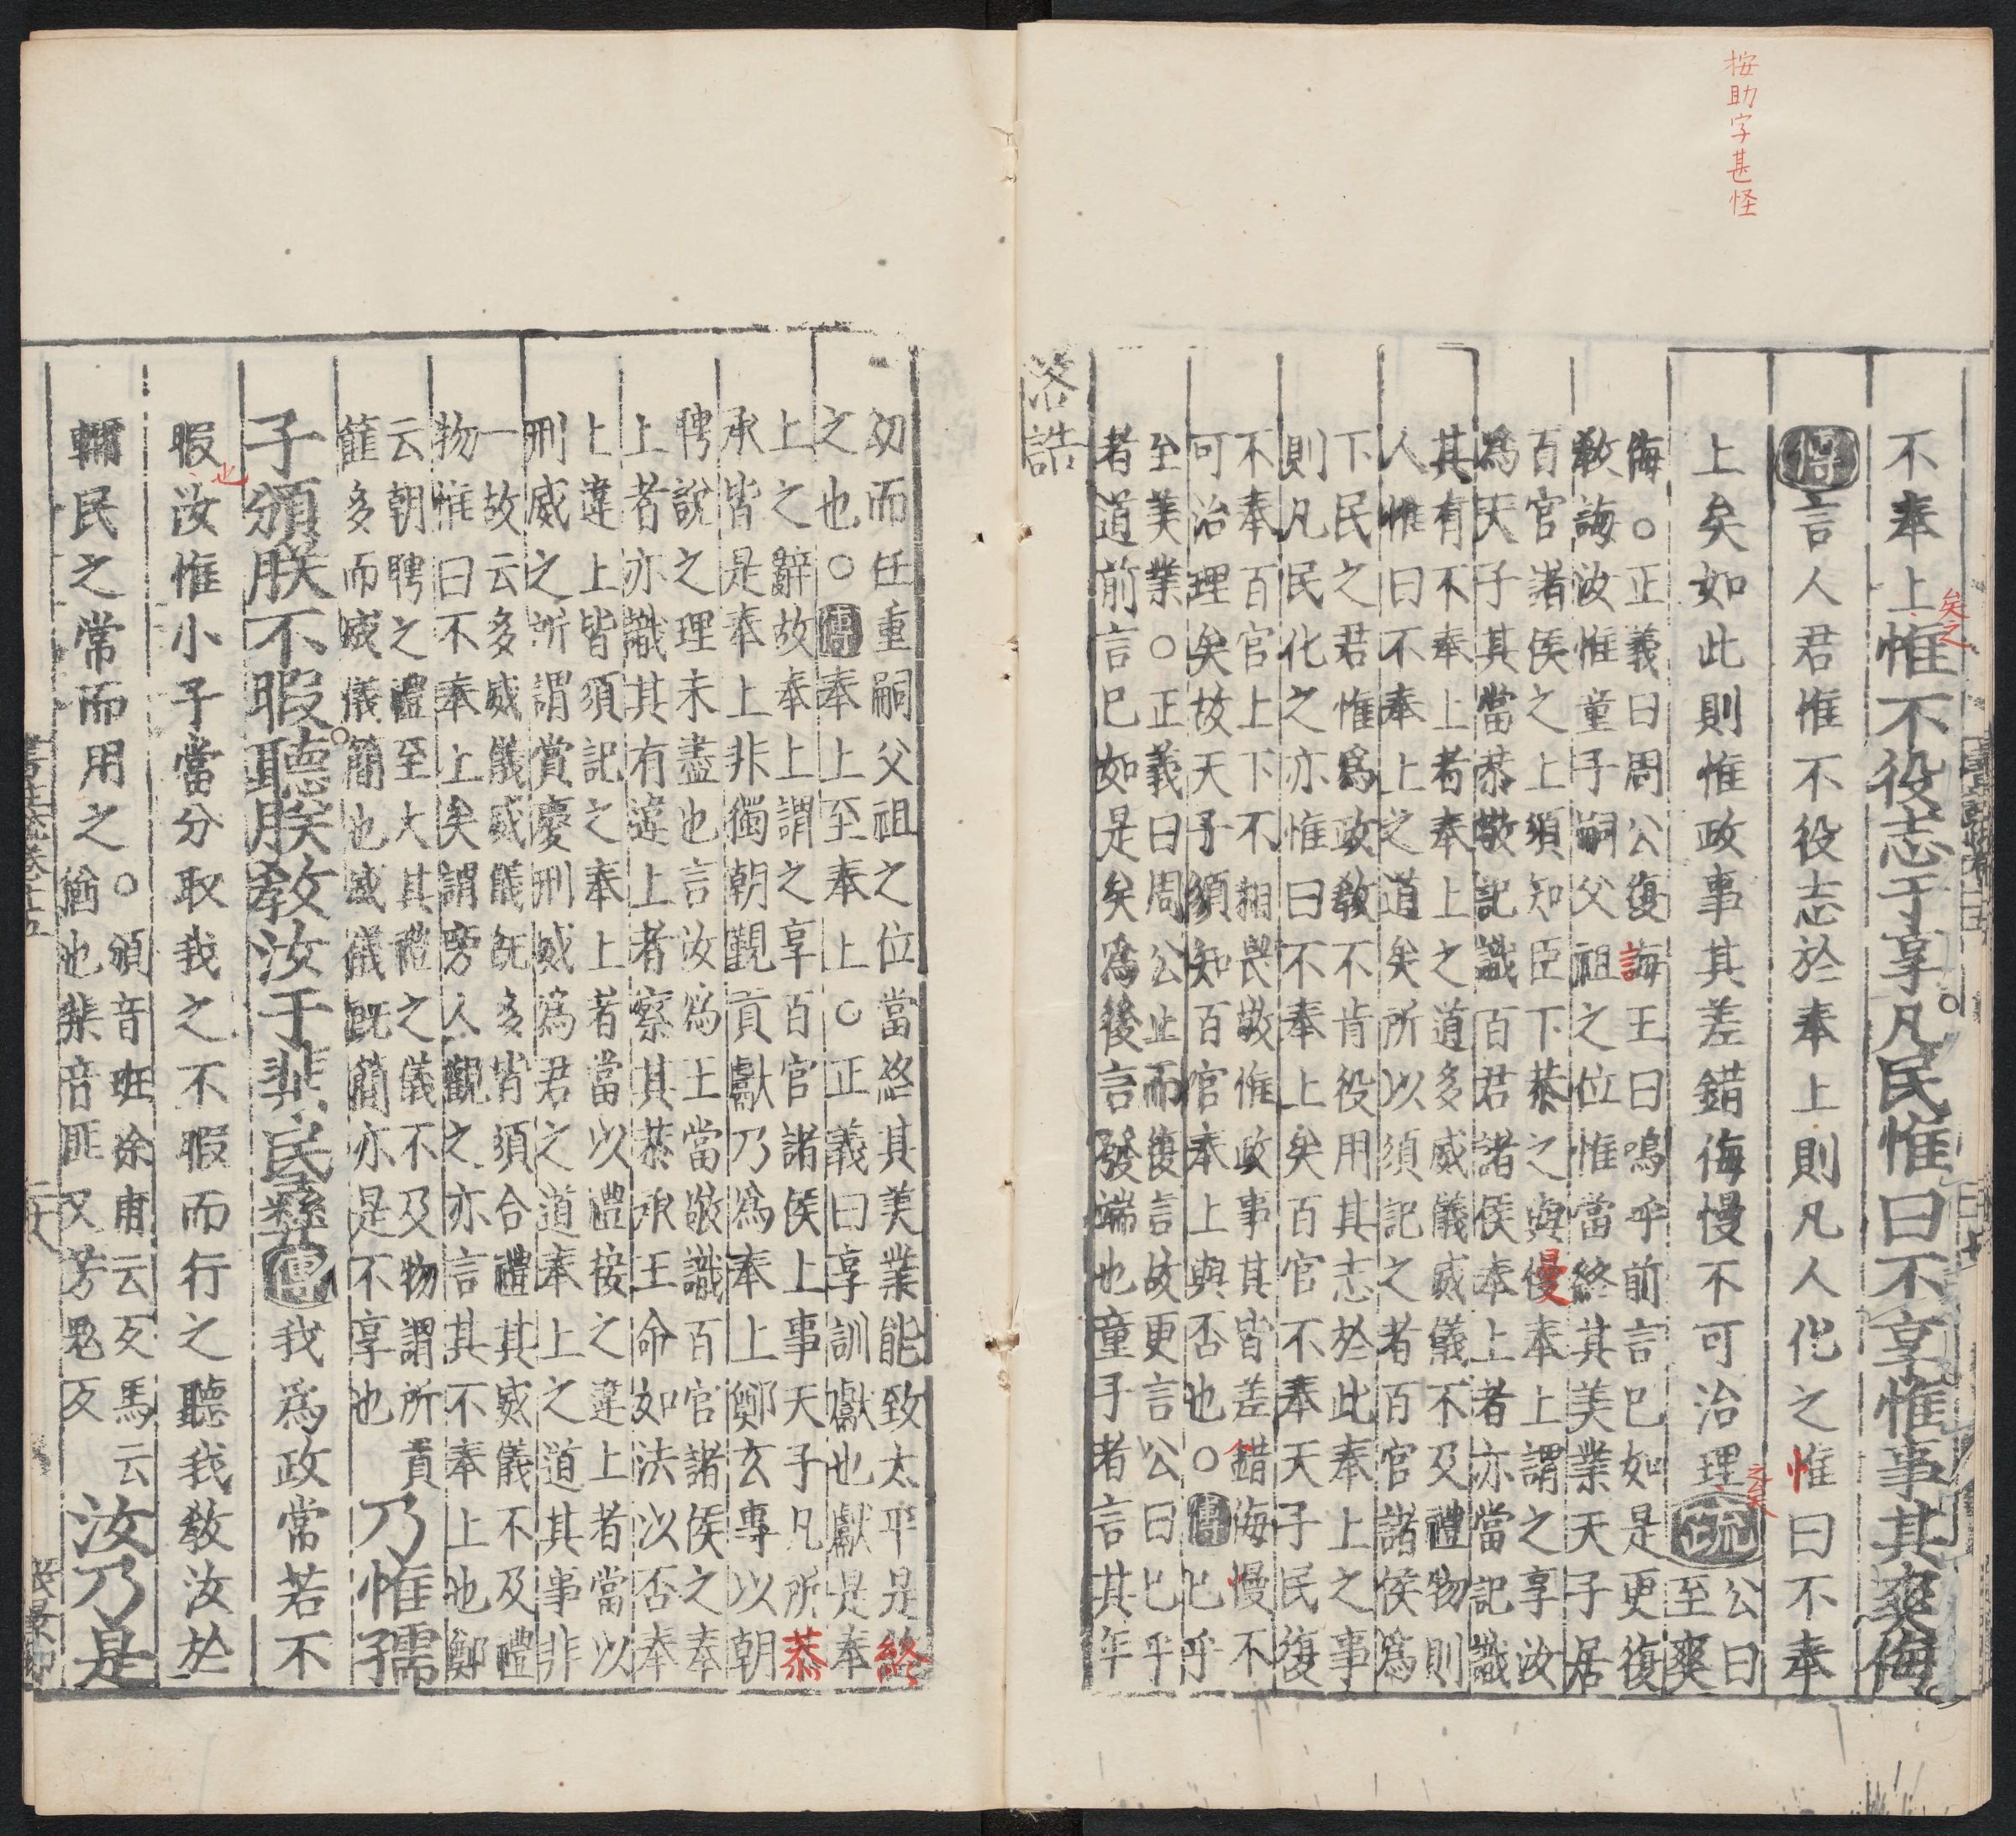 按助字甚怪
不奉上惟不役志于享凡民惟曰不享惟事其爽侮
矣之
傳言人君惟不役志於奉上則凡人化之惟曰不奉
上矣如此則惟政事其差錯侮慢不可治理疏公曰
之矣
至爽
侮○正義曰周公復誨王曰嗚乎前言已如是更復
教誨汝惟童子嗣父祖之位惟當終其美業天子居
百官諸侯之上須知臣下恭之與慢奉上謂之享汝
爲天子其當恭敬記識百君諸侯奉上者亦當記識
其有不奉上者奉上之道多威儀威儀不及禮物則
人惟曰不奉上之道矣所以須記之者百官諸侯爲
下民之君惟爲政教不肯役用其志於此奉上之事
則凡民化之亦惟曰不奉上矣百官不奉天子民復
不奉百官上下不相畏敬惟政事其皆差錯侮慢不
可治理矣故天子須知百官奉上與否也○傳已乎
至美業○正義曰周公止而復言故更言公曰已乎
者道前言已如是矣爲後言發端也童子者言其年
洛誥
幼而任重嗣父祖之位當終其美業能致太平是終
之也○傳奉上至奉上○正義曰享訓獻也獻是奉
上之辭故奉上謂之享百官諸侯上事天子凡所恭
承皆是奉上非獨朝覲貢獻乃爲奉上鄭玄專以朝
聘說之理未盡也言汝爲王當敬識百官諸侯之奉
上者亦識其有違上者察其恭承王命如法以否奉
上違上皆須記之奉上者當以禮接之違上者當以
刑威之所謂賞慶刑威爲君之道奉上之道其事非
一故云多威儀威儀既多皆須合禮其威儀不及禮
物惟曰不奉上矣謂旁人觀之亦言其不奉上也鄭
云朝聘之禮至大其禮之儀不及物謂所貢
篚多而威儀簡也威儀既簡亦是不享也乃惟孺
子頒朕不暇聽朕教汝于棐民彝傳我爲政常若不
暇汝惟小子當分取我之不暇而行之聽我教汝於
也
輔民之常而用之○頒音班徐甫云反馬云
猶也棐音匪又芳鬼反汝乃是